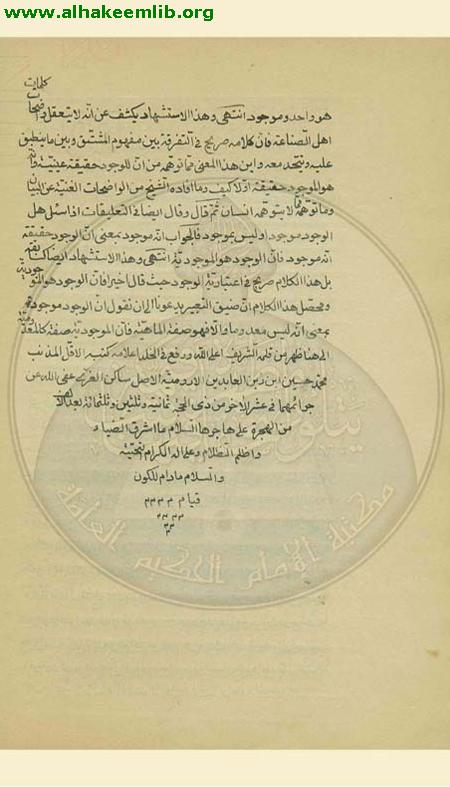 www.alhakeemlib.org
كلمات
هو واحد وموجود انتهى وهذا الاستشهاد يكشف عن انه لا يتعقل واضحات
اهل الصناعة فان كلامه صريح في التفرقة بين مفهوم المشتق وبين ما ينطبق
عليه ويتحد معه واين هذا المعنى مما توهمه من ان للوجود حقيقة عينية وانه
هو الموجود حقيقة اذ لا كيف وما افاده الشيخ من الواضحات الغنية عن البيان
وما توهمه مما لا يتوهمه انسان ثم قال وقال ايضا في التعليقات اذا سئل هل
الوجود موجود او ليس بموجود فالجواب انه موجود بمعنى ان الوجود حقيقته
انه موجود فان الوجود هو الموجودية انتهى وهذا الاستشهاد ايضا كسابقه
بل هذا الكلام صريح في اعتبارية الوجود حيث قال اخيرا فان الوجود هو الموجودية
ومحصل هذا الكلام ان ضيق التعبير يدعونا الى ان نقول ان الوجود موجود
بمعنى انه ليس معدوما والا فهو صفة الماهية فان الموجودية صفة
الى هنا ظهر من قلمه الشريف اعلى الله ورفع في الخلد اعلامه كتبه الاقل المذنب
محمد حسين ابن زين العابدين الارومية الاصل ساكن الغرى عفى الله عن
جرائمهما في عشر الاخر من ذى الحجة ثمانية وثلثين وثلثمائة بعد الالف
من الهجرة على هاجرها السلام ما اشرق الضياء
واظلم الظلام وعلى اله الكرام التحية
والسلام مادام للكون
قيام م م م م
م م م م
م م
م
مكتبة الإمام الحكيم العامة